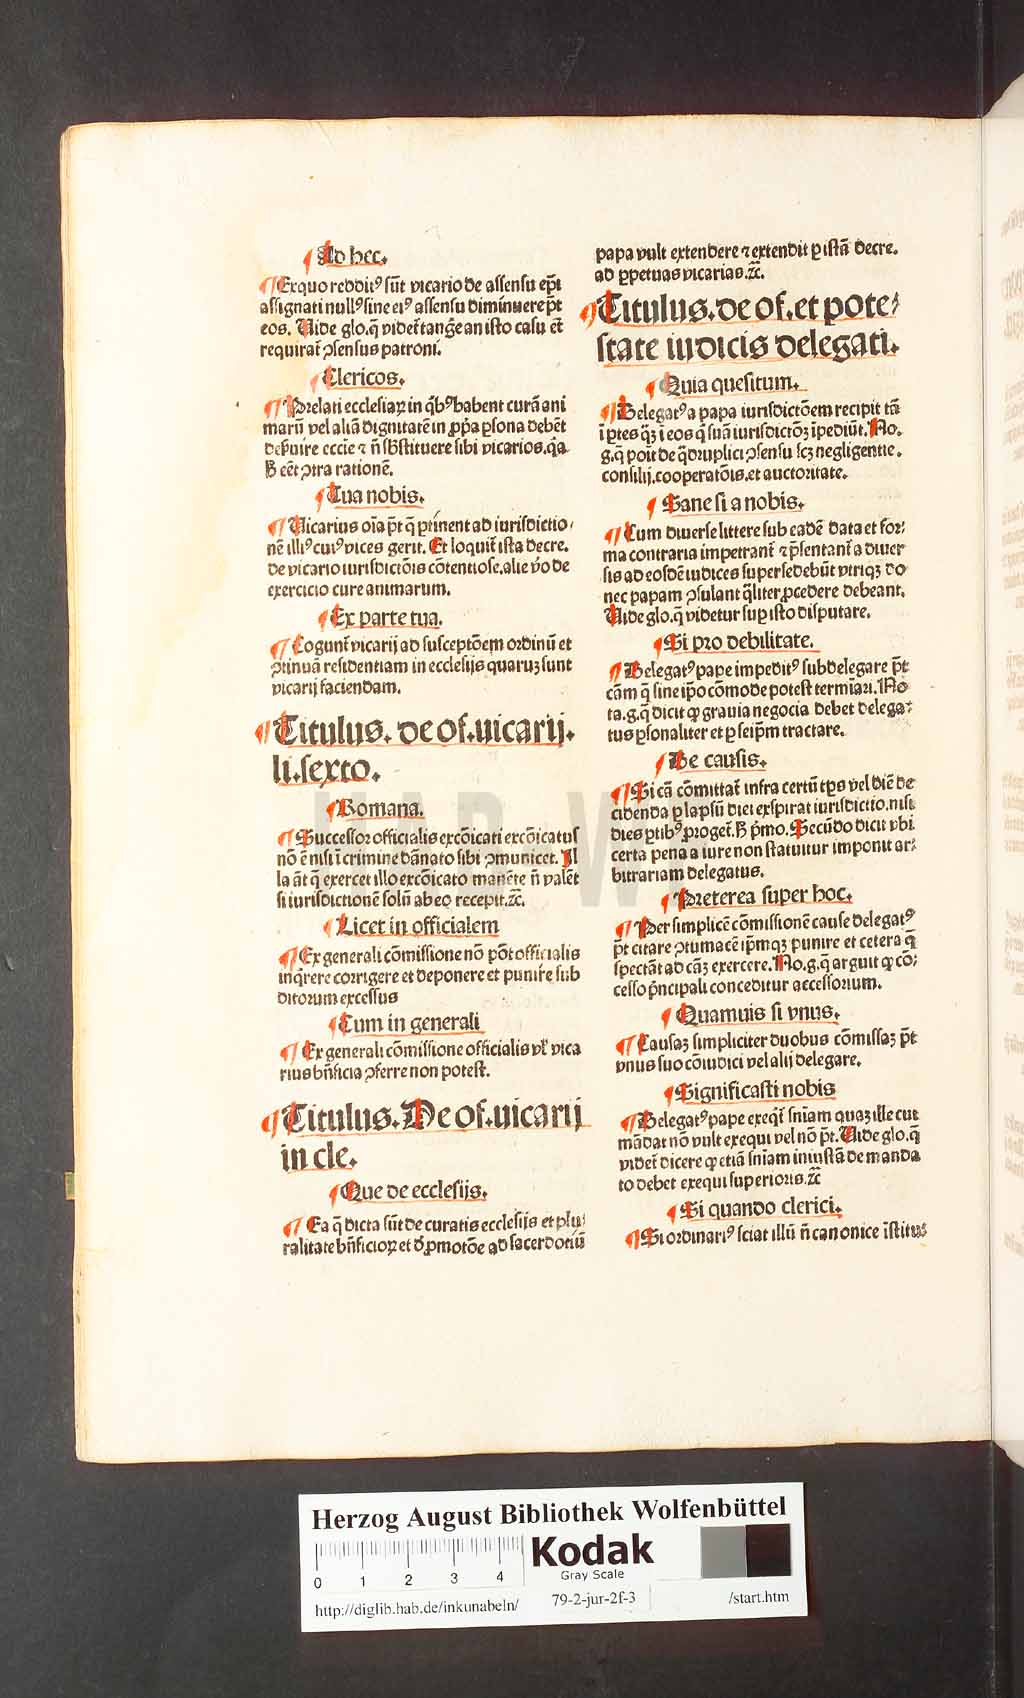 ¶ Ad hec.
¶ Ex quo reddit⁹ sūt vicario de assensu ep̄i
assignati null⁹ sine ei⁹ assensu diminuere p̄t
eos. Vide glo. q̄ videt᷑ tang̃e an isto casu et̄
requirat᷑ ꝯsensus patroni.
¶ Clericos.
¶ Prelati ecclesiaꝝ in q̄b⁹ habent curā ani
marū vel aliā dignitatē in ꝓp̄a ꝑsona debēt
deẜuire eccīe ⁊ n̄ sb̄stituere sibi vicarios. q̄a
ꝧ eēt ꝯtra rationē.
¶ Tua nobis.
¶ Vicarius oīa p̄t q̄ ꝑtinent ad iurisdictio⸗
nē illi⁹ cui⁹ vices gerit. Et loquit᷑ ista decre.
de vicario iurisdictiōis cōtentiose. alie v̄o de
exercicio cure animarum.
¶ Ex parte tua.
¶ Cogunt᷑ vicarij ad susceptōem ordinū et
ꝯtinuā residentiam in ecclesijs quaruꝫ sunt
vicarij faciendam.
¶ Titulus. de of. vicarij.
li. sexto.
¶ Romana.
¶ Successor officialis excōicati excōicatus
nō ē nisi ī crimine dānato sibi ꝯmunicet. Il
la āt q̄ exercet illo excōicato manēte n̄ valēt
si iurisdictionē solū ab eo recepit. ⁊c̄.
¶ Licet in officialem
¶ Ex generali cōmissione nō pōt officialis
inq̄rere corrigere et deponere et punire sub
ditorum excessus
¶ Cum in generali
¶ Ex generali cōmissione officialis vl̄ vica
rius bn̄ficia ꝯferre non potest.
¶ Titulus. De of. vicarij
in cle.
¶ Que de ecclesijs.
¶ Ea q̄ dicta sūt de curatis ecclesijs et plu⸗
ralitate bn̄ficioꝝ et d̄ ꝓmotōe ad sacerdotiū
papa vult extendere ⁊ extendit ꝑ istā decre.
ad ꝑpetuas vicarias. ⁊c̄.
¶ Titulus. de of. et pote⸗
state iudicis delegati.
¶ Quia quesitum.
¶ Delegat⁹ a papa iurisdictōem recipit tā
ī ꝑtes q̄ꝫ ī eos q̄ suā iurisdictioꝫ īpediūt. No.
g. q̄ ponit de q̄druplici ꝯsensu scꝫ negligentie.
consilij. cooperatōis. et auctoritate.
¶ Sane si a nobis.
¶ Cum diuerse littere sub eadē data et for⸗
ma contraria impetrant᷑ ⁊ p̄sentant᷑ a diuer
sis ad eosdē iudices supersedebūt vtriqꝫ do
nec papam ꝯsulant q̄liter ꝓcedere debeant.
Vide glo. q̄ videtur sup isto disputare.
¶ Si pro debilitate.
¶ Delegat⁹ pape impedit⁹ subdelegare p̄t
cām q̄ sine ip̄o cōmode potest termiari. No
ta. g. q̄ dicit ꝙ grauia negocia debet delega⸗
tus ꝑsonaliter et ꝑ seip̄m tractare.
¶ De causis.
¶ Si cā cōmittat᷑ infra certū tp̄s vel diē de
cidenda ꝑ lapsū diei exspirat iurisdictio. nisi
dies ꝑtib⁹ ꝓroget᷑. ꝧ p̄mo. Secūdo dicit vbi
certa pena a iure non statuitur imponit᷑ ar⸗
bitrariam delegatus.
¶ Preterea super hoc.
¶ Per simplicē cōmissionē cause delegat⁹
p̄t citare ꝯtumacē ip̄mqꝫ punire et cetera q̄
spectāt ad cāꝫ exercere. No. g. q̄ arguit ꝙ cō⸗
cesso p̄ncipali conceditur accessorium.
¶ Quamuis si vnus.
¶ Causaꝫ simpliciter duobus cōmissaꝫ p̄t
vnus suo cōiudici vel alij delegare.
¶ Significasti nobis
¶ Delegat⁹ pape exeqt᷑ sniam quaꝫ ille cui
mādat nō vult exequi vel nō p̄t. Vide glo. q̄
videt᷑ dicere ꝙ etiā sniam iniustā de manda
to debet exequi superioris. ⁊c̄
¶ Si quando clerici.
¶ Si ordinari⁹ sciat illū n̄ canonice īstitu⸗
HAB WF
Herzog August Bibliothek Wolfenbüttel
Kodak
Gray Scale
0 1 2 3 4
http://diglib.hab.de/inkunabeln/ 79-2-jur-2f-3 /start.htm